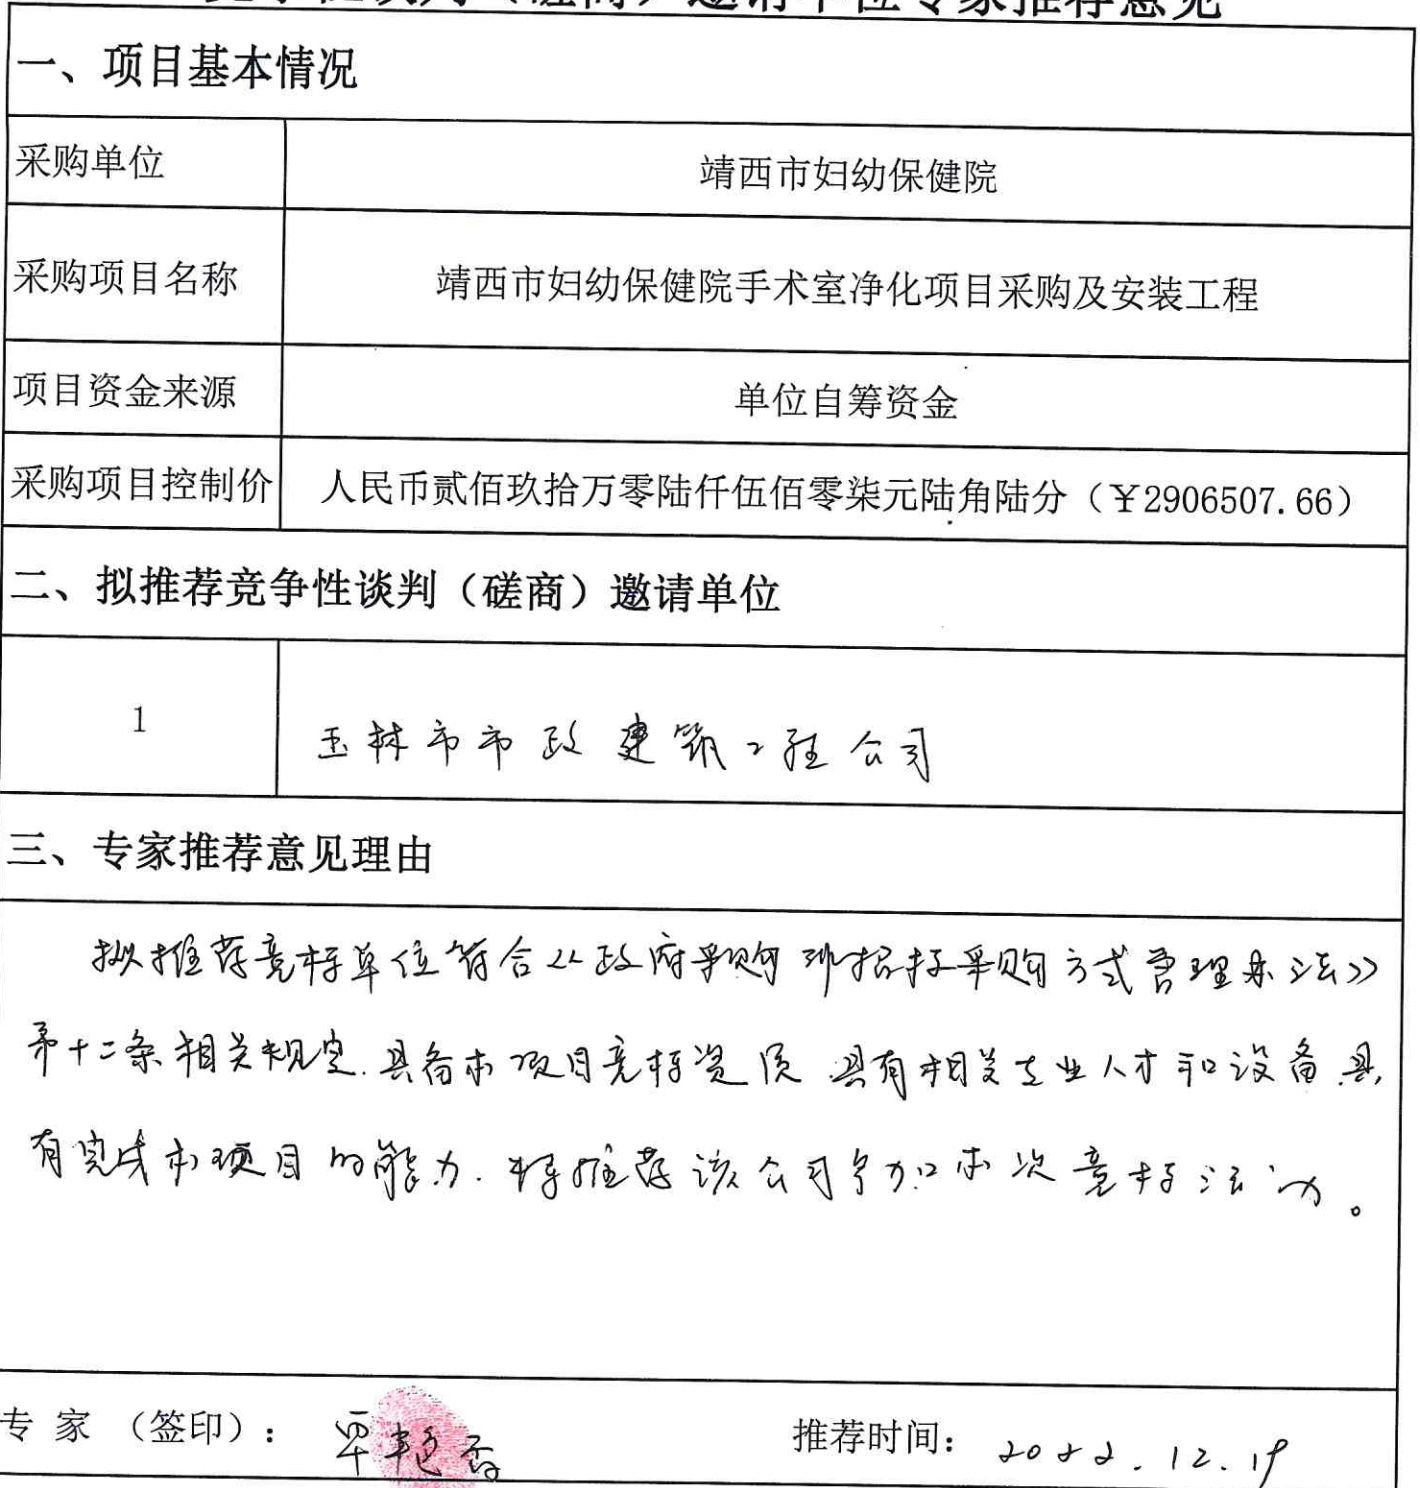 竞争性谈判（磋商）邀请单位专家推荐意见
一、项目基本情况
采购单位 靖西市妇幼保健院
采购项目名称 靖西市妇幼保健院手术室净化项目采购及安装工程
项目资金来源 单位自筹资金
采购项目控制价 人民币贰佰玖拾万零陆仟伍佰零柒元陆角陆分（￥2906507.66）
二、拟推荐竞争性谈判（磋商）邀请单位
1 玉林市市政建筑工程公司
三、专家推荐意见理由
拟推荐竞标单位符合《政府采购非招标采购方式管理办法》
第十二条相关规定.具备本项目竞标资质 具有相关专业人才和设备.具
有完成本项目的能力.特推荐该公司参加本次竞标活动。
专 家 （签印）： 推荐时间： 2022.12.19